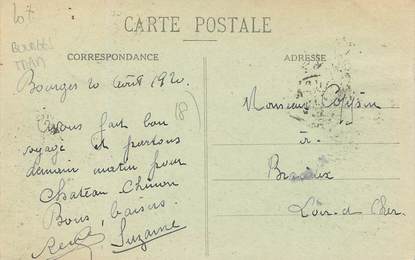 107
BOURGES
TRAM
CARTE POSTALE
CORRESPONDANCE
ADRESSE
Bourges 20 août 1920
(8)
Avons fait bon
voyage et partons
demain matin pour
Chateau Chinon
Bons baisers
René Suzanne
Monsieur
à
Bracieux
Loir-et-Cher